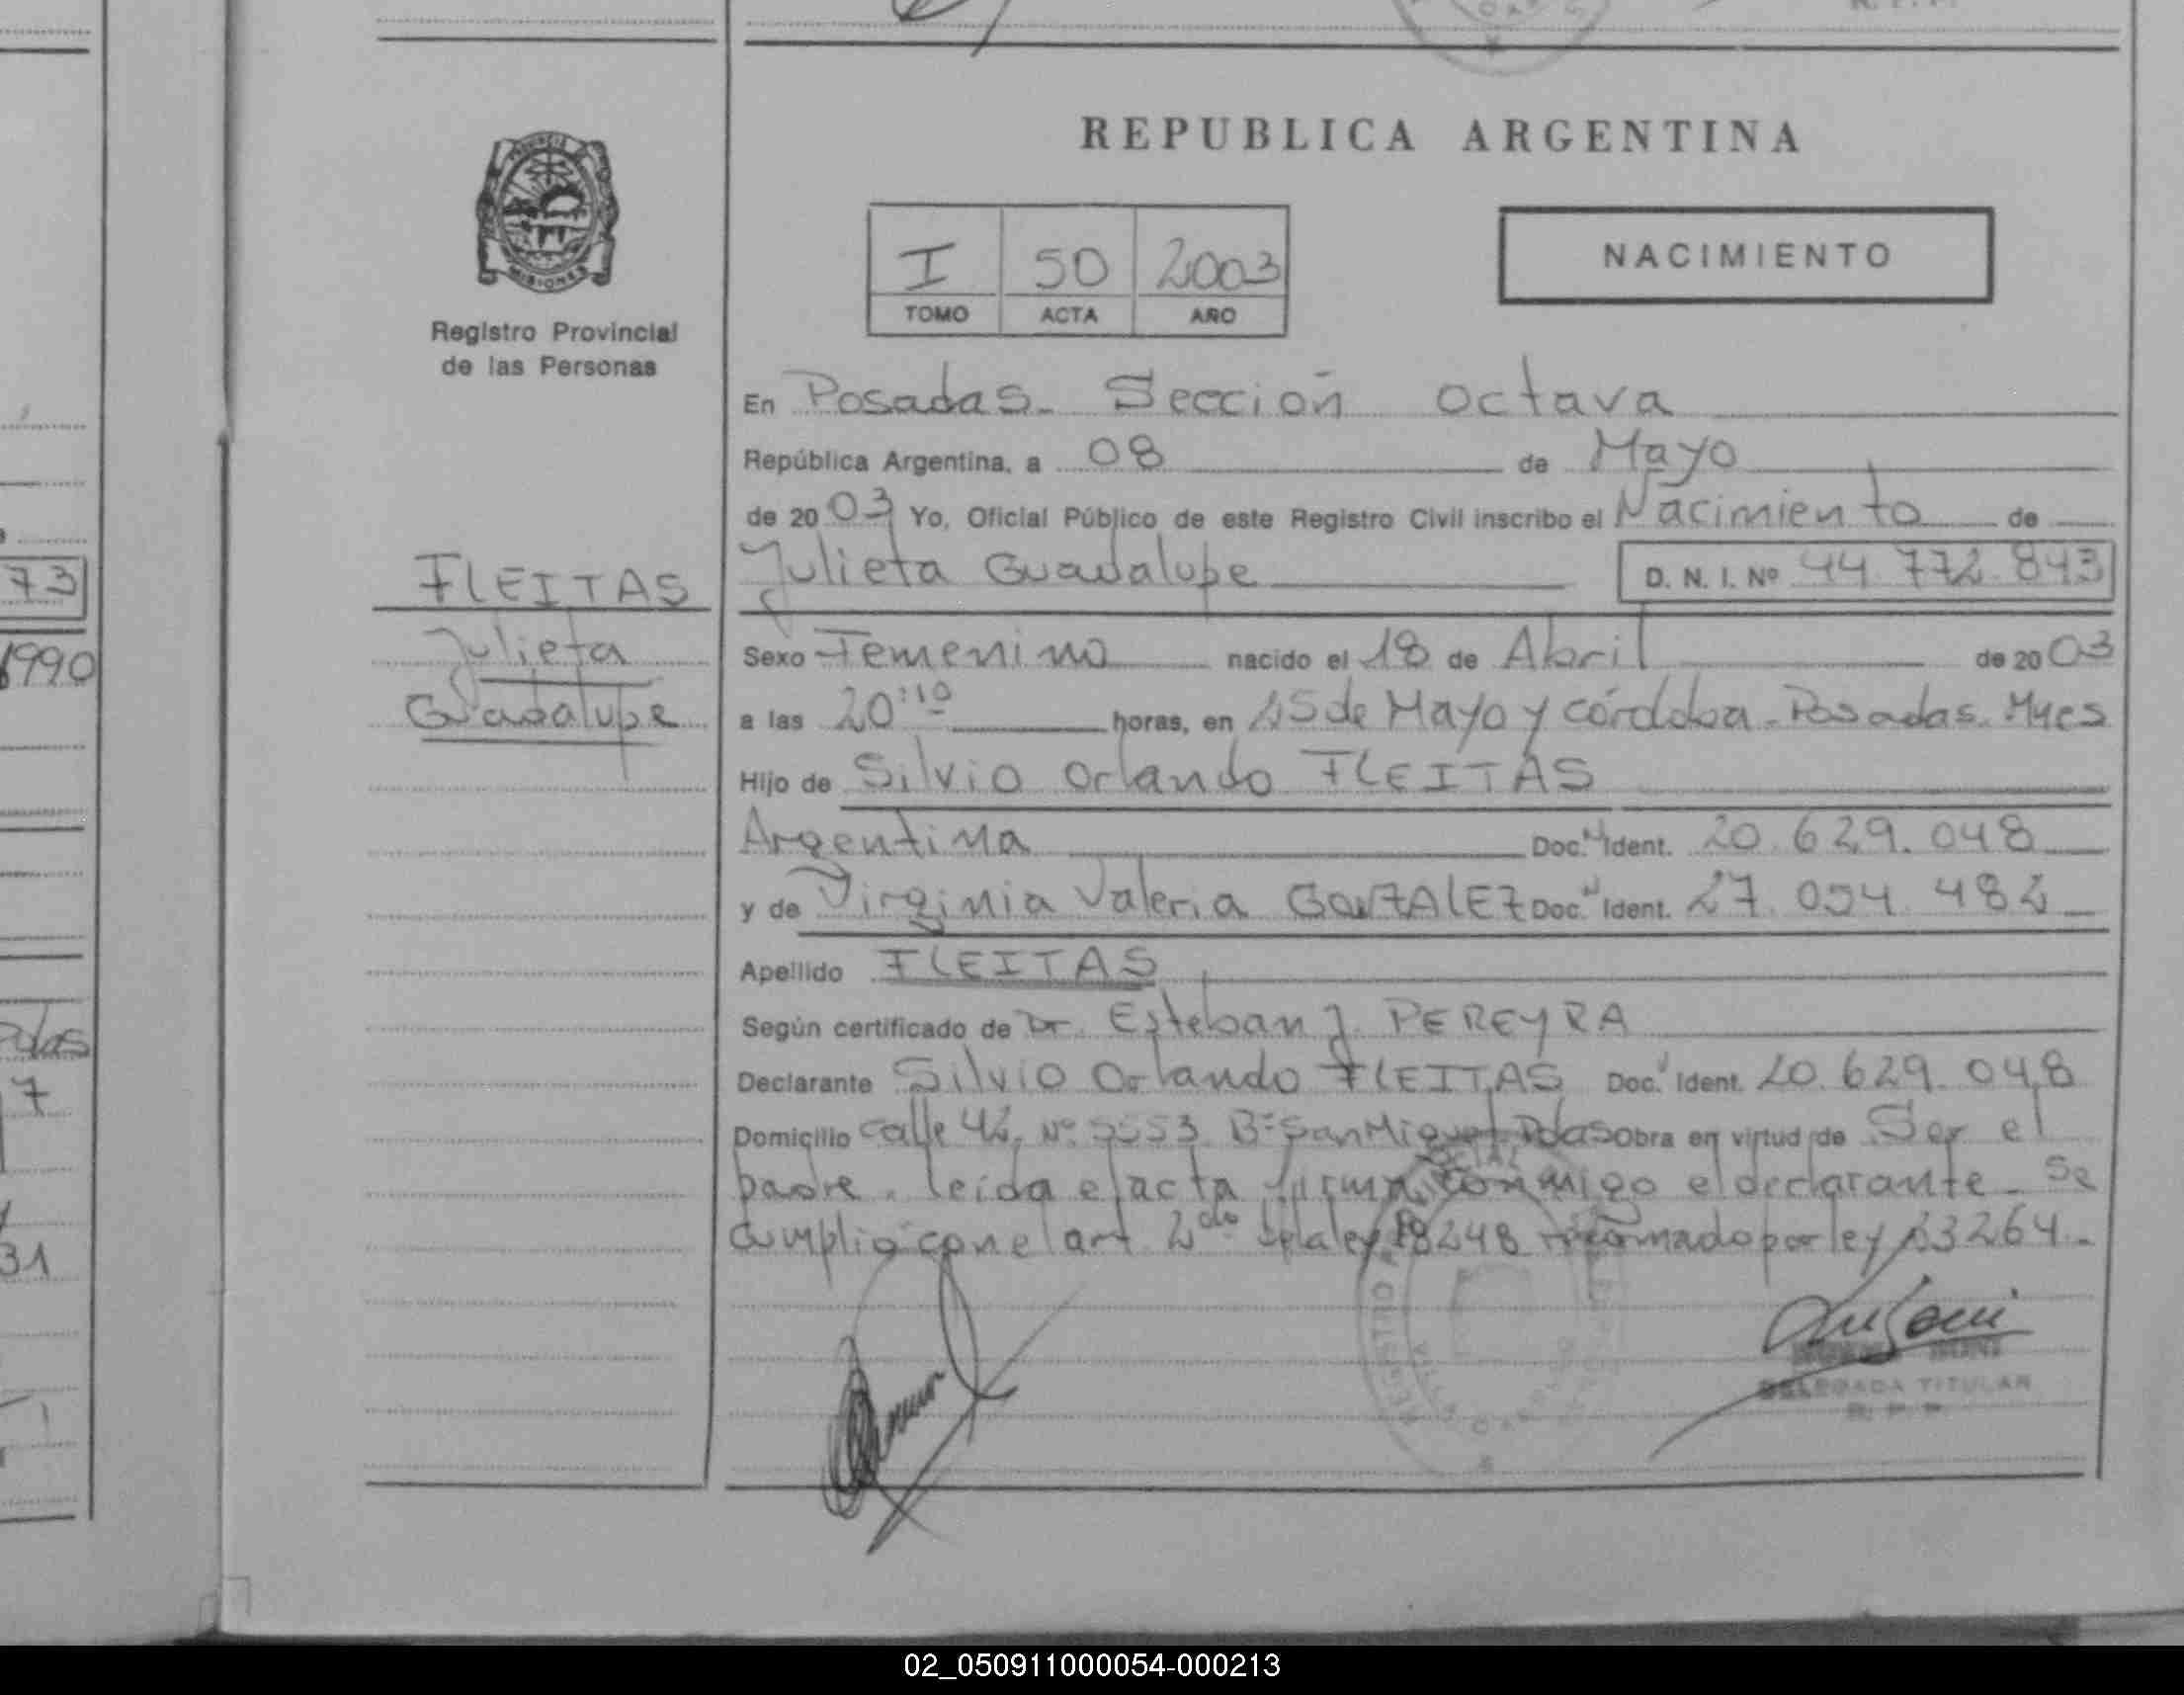 REPUBLICA ARGENTINA
PROVINCIA DE MISIONES
Registro Provincial
de las Personas
I 50 2003
TOMO ACTA AÑO
NACIMIENTO
En Posadas. Sección octava
República Argentina, a 08 de Mayo
de 2003 Yo, Oficial Público de este Registro Civil inscribo el Nacimiento de
FLEITAS
Julieta
Guadalupe
Julieta Guadalupe D. N. I. Nº 44.772.843
Sexo Femenino nacido el 18 de Abril de 2003
a las 20:10 horas, en 25 de Mayo y córdoba - Posadas. Mnes
Hijo de Silvio Orlando FLEITAS
Argentina Doc. Ident. 20.629.048
y de Virginia Valeria GONZALEZ Doc. Ident. 27.054.482
Apellido FLEITAS
Según certificado de Dr. Esteban J. PEREYRA
Declarante Silvio Orlando FLEITAS Doc. Ident. 20.629.048
Domicilio calle 42, Nº 5553 Bº San Miguel Pdas Obra en virtud de Ser el
padre. leída el acta firma conmigo el declarante - Se
cumplió con el art 2do de la ley 18248 reformado por ley 23264.-
DELEGADA TITULAR
R. P. P.
73
1990
7
31
02_050911000054-000213